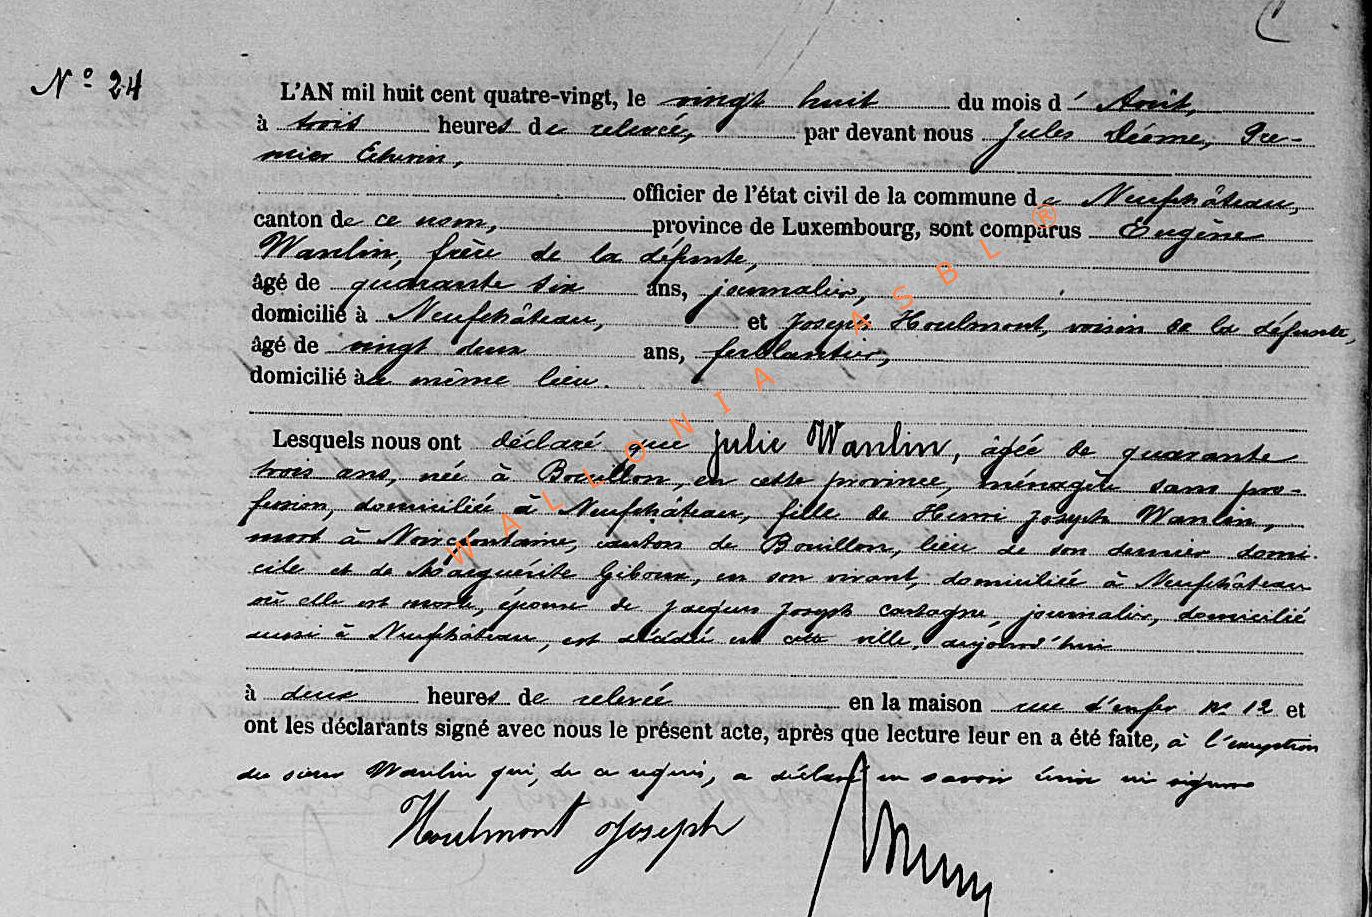 N° 24
L'AN mil huit cent quatre-vingt, le vingt huit du mois d' Août,
à trois heures de relevée, par devant nous Jules Dième, Pre-
mier Echevin,
officier de l'état civil de la commune de Neufchâteau,
canton de ce nom, province de Luxembourg, sont comparus Eugène
Wanlin, frère de la défunte,
âgé de quarante six ans, journalier,
domicilié à Neufchâteau, et Joseph Houlmont, voisin de la défunte,
âgé de vingt deux ans, ferblantier,
domicilié à même lieu.
Lesquels nous ont déclaré que Julie Wanlin, âgée de quarante
trois ans, née à Bouillon, en cette province, ménagère sans pro-
fession, domiciliée à Neufchâteau, fille de Henri Joseph Wanlin,
mort à Noirefontaine, canton de Bouillon, lieu de son dernier domi-
cile et de Marguérite Giboux, en son vivant, domiciliée à Neufchâteau
où elle est morte, épouse de Jacques Joseph Castagne, journalier, domicilié
aussi à Neufchâteau, est décédée en cette ville, aujourd'hui
à deux heures de relevée en la maison rue d'enfer n° 12 et
ont les déclarants signé avec nous le présent acte, après que lecture leur en a été faite, à l'exception
du sieur Wanlin qui, de ce requis, a déclaré ne savoir écrire ni signer
Houlmont Joseph
WALLONIA ASBL ®